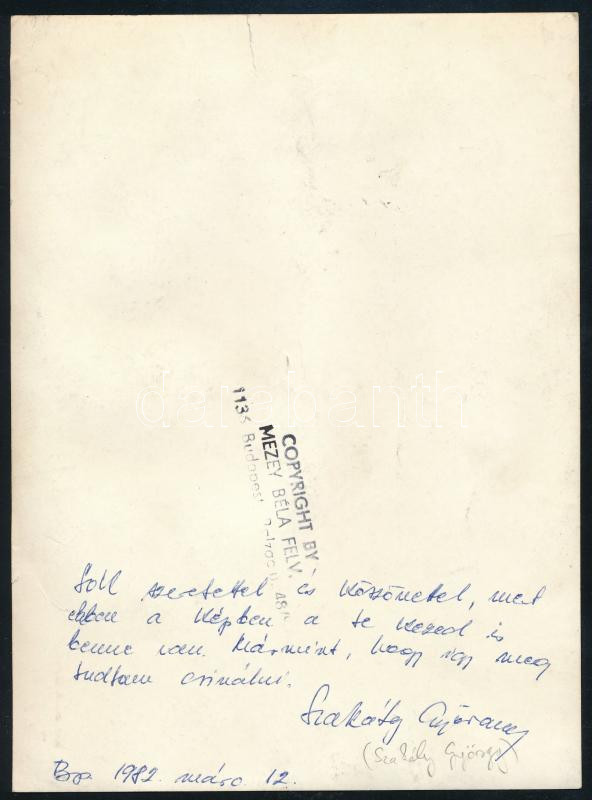 darabanth
COPYRIGHT BY
MEZEY BÉLA FELV.
Budapest
Sok szeretettel és köszönettel, mert
ebben a képben a te kezed is
benne van. Mármint, hogy így meg
tudtam csinálni.
Szakály György
(Szakály György)
Bp. 1982. márc. 12.